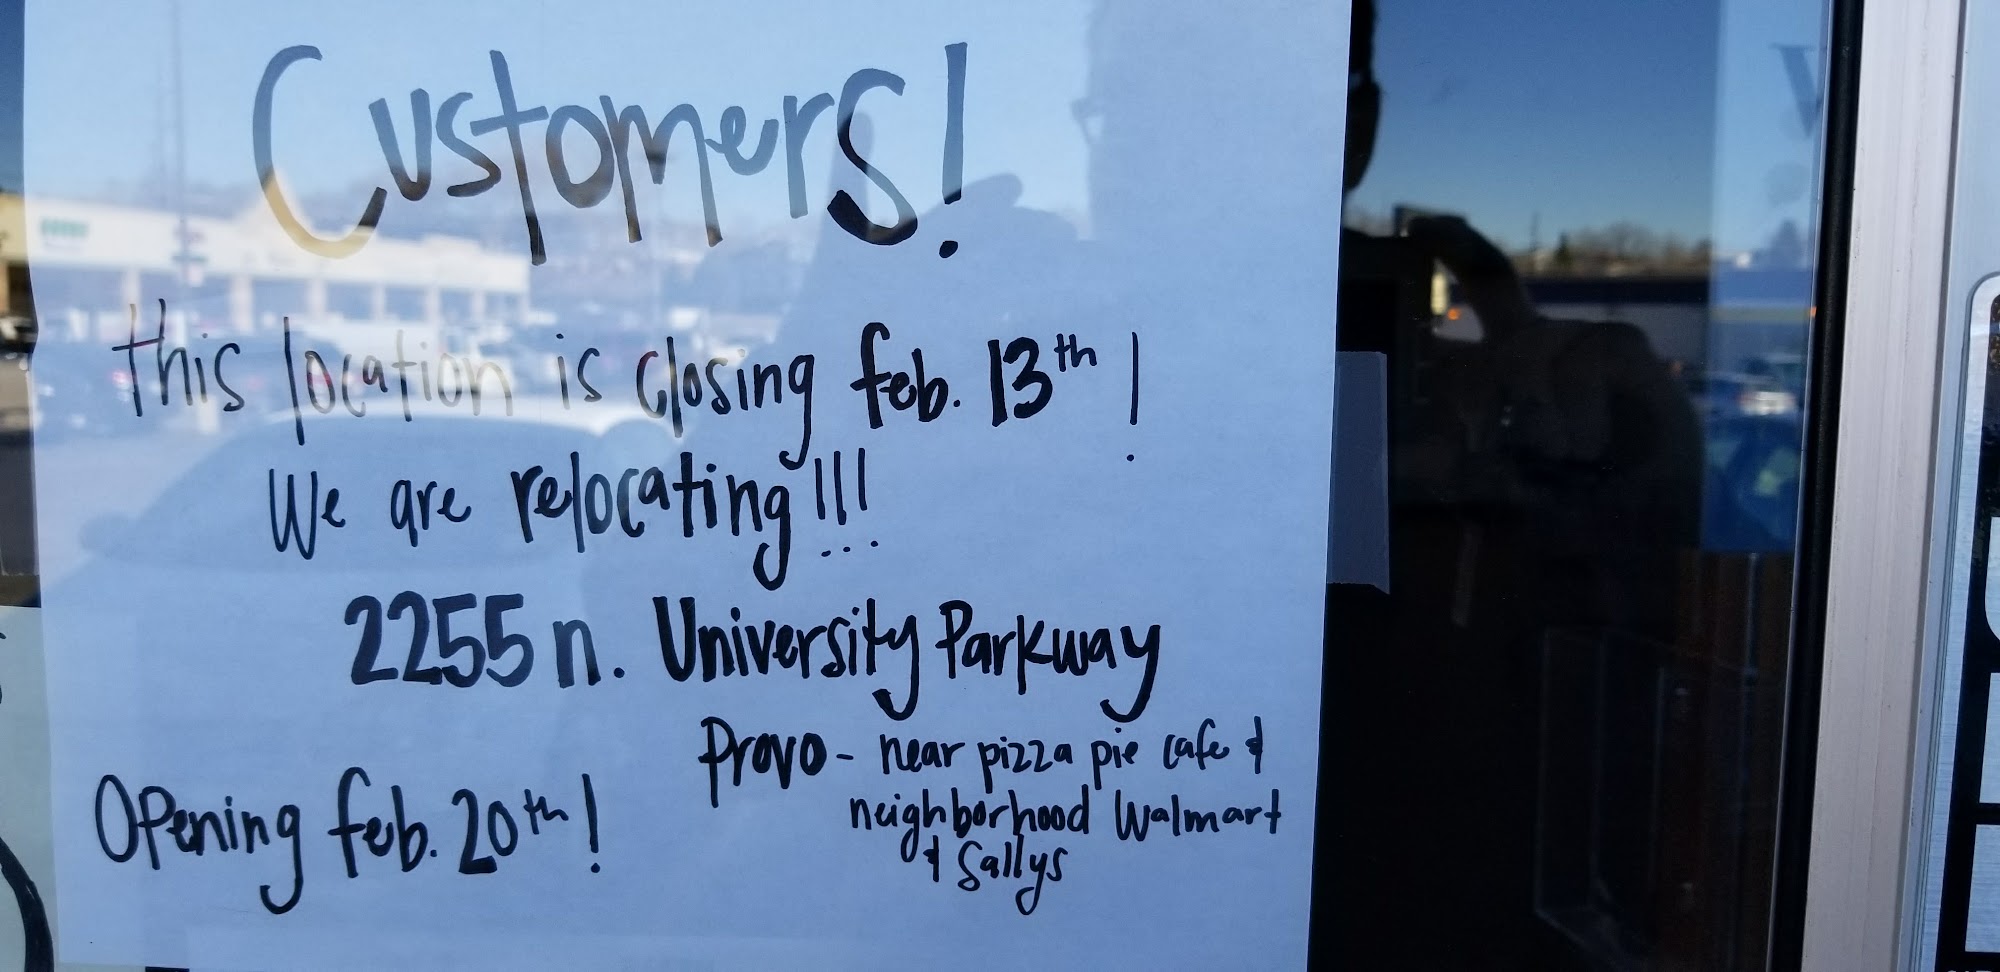 Customers!
This location is closing Feb. 13th!
We are relocating!!!
2255 n. University Parkway
Provo - near pizza pie cafe &
neighborhood Walmart
& Sallys
Opening Feb. 20th!